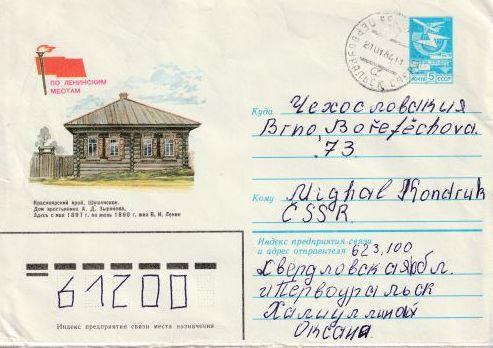 ПО ЛЕНИНСКИМ
МЕСТАМ
Красноярский край, Шушенское.
Дом крестьянина А. Д. Зырянова.
Здесь с мая 1897 г. по июль 1898 г. жил В. И. Ленин
ПОЧТА 5 СССР
21.01.84.11
Куда Чехословакия
Brno, Bořeťěchova
73
Кому Mighal Kondruk
ČSSR.
Индекс предприятия связи
и адрес отправителя 623,100
Свердловская обл.
г Первоуральск
Халиуллиной
Оксана.
61200
Индекс предприятия связи места назначения